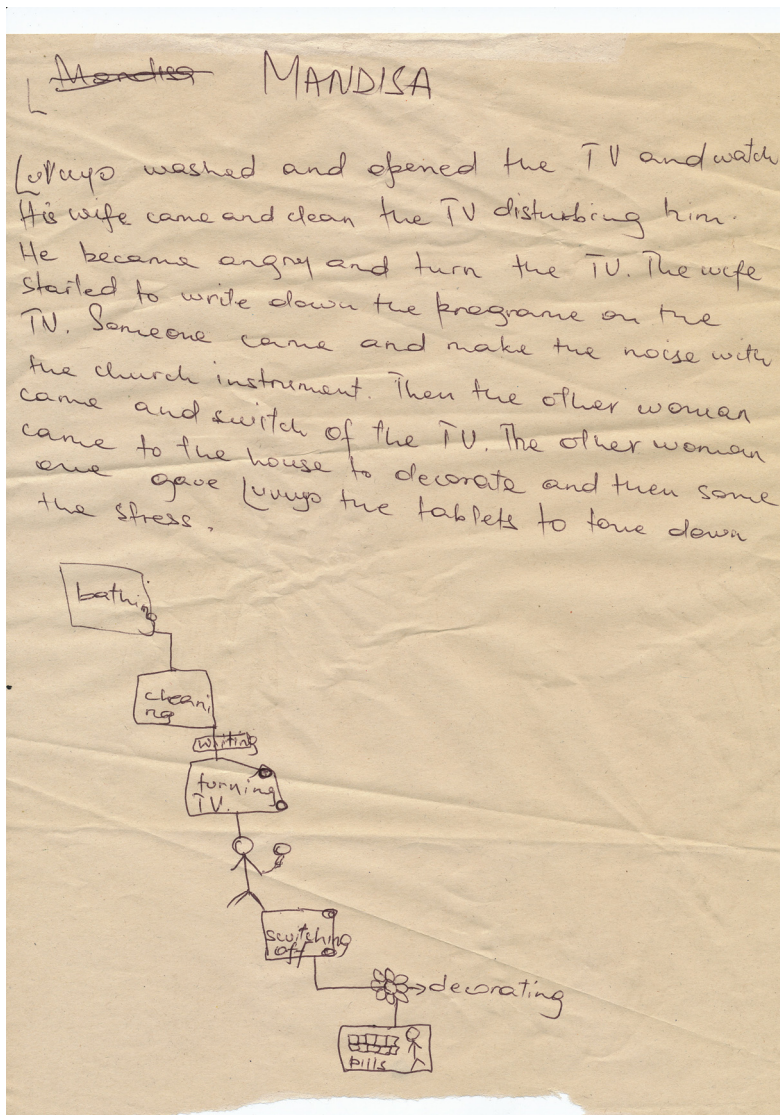 Mandisa MANDISA
Luvuyo washed and opened the TV and watch
His wife came and clean the TV disturbing him.
He became angry and turn the TV. The wife
started to write down the programe on the
TV. Someone came and make the noise with
the church instrument. Then the other woman
came and switch of the TV. The other woman
came to the house to decorate and then some
one gave Luvuyo the tablets to tone down
the stress.
bathing
cleani
ng
writing
turning
TV.
switshing
off
decorating
pills